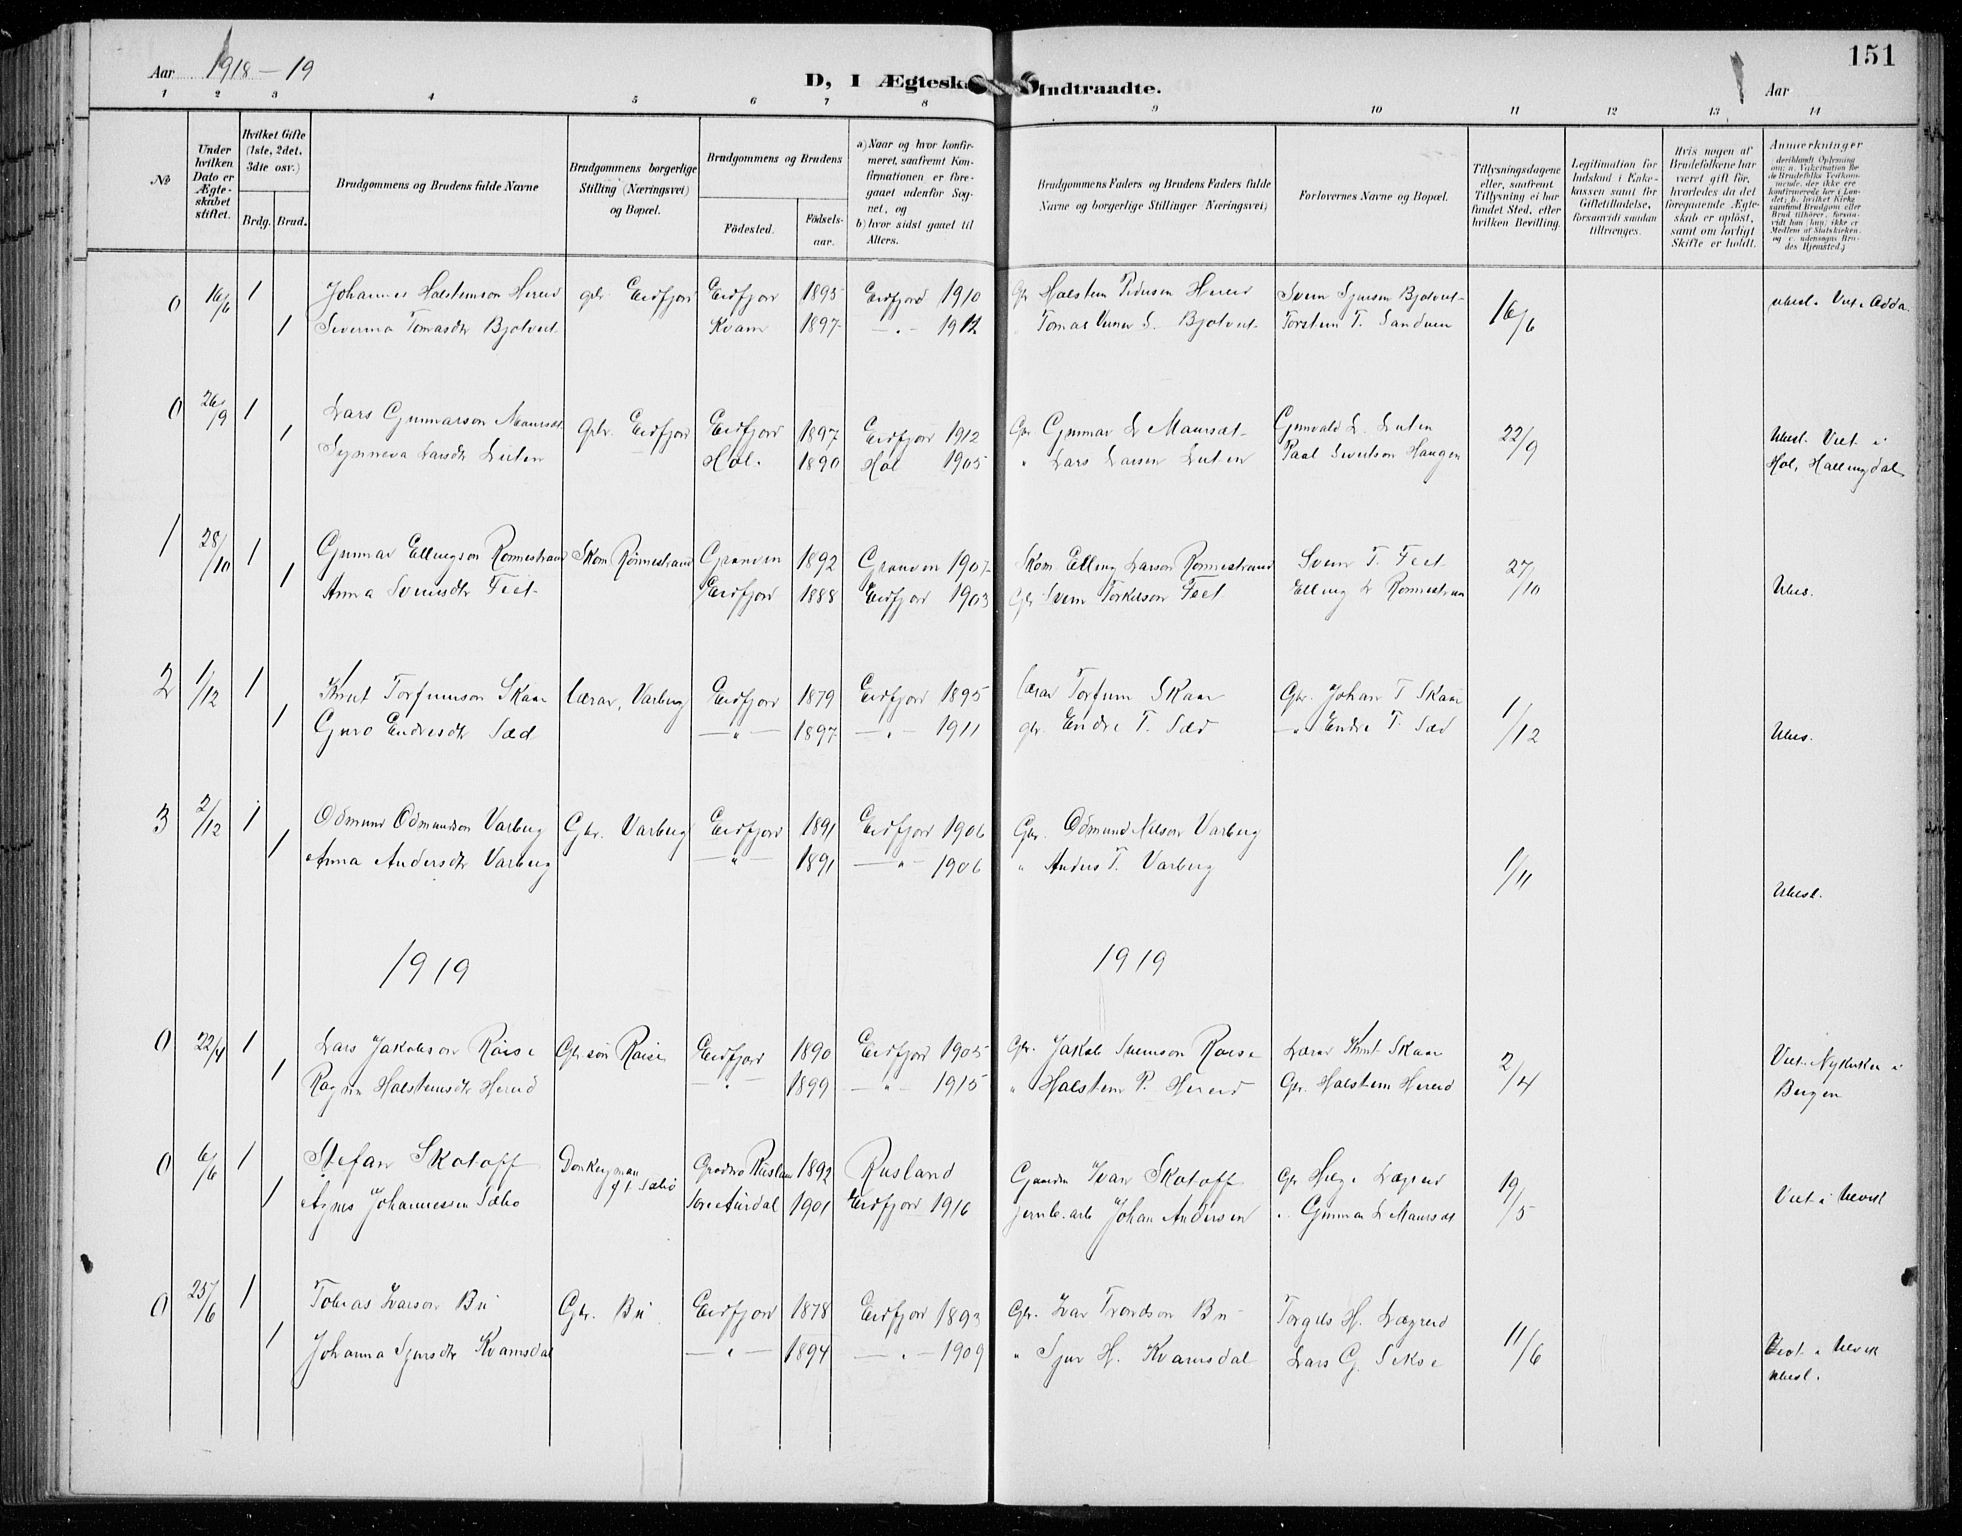 Aar 1918 – 19
D, I Ægtesk Indtraadte.
Aar
151
1 2 3 4 5 6 7 8 9 10 11 12 13 14
№
Under hvilken Dato er Ægteskabet stiftet.
Hvilket Gifte (1ste, 2det, 3die osv.)
Brdg. Brud.
Brudgommens og Brudens fulde Navne
Brudgommens borgerlige Stilling (Næringsvei) og Bopæl.
Brudgommens og Brudens
Födested. Födselsaar.
a) Naar og hvor konfirmeret, saafremt Konfirmationen er foregaaet udenfor Sognet, og
b) hvor sidst gaaet til Alters.
Brudgommens Faders og Brudens Faders fulde Navne og borgerlige Stillinger (Næringsvei)
Forlovernes Navne og Bopæl.
Tillysningsdagene eller, saafremt Tillysning ei har fundet Sted, efter hvilken Bevilling.
Legitimation for Indskud i Enkekassen samt for Giftetilladelse, forsaavidt saadan tiltrænges.
Hvis nogen af Brudefolkene har været gift før, hvorledes da det foregaaende Ægteskab er opløst, samt om lovligt Skifte er holdt.
Anmærkninger
0 16/6 1 Johannes Halstemson Hereid gbr Eidfjord Eidfjord 1895 Eidfjord 1910 Gbr Halstem Pedersen Hereid Svein Sjursen Bjotveit 16/6 ubesl. Viet i Odda.
1 Severina Tomasdtr Bjotveit Kvam 1897 –"– 1912 Tomas S. Bjotveit Torstein T. Sandven
0 26/9 1 Lars Gunnarson Maursæt Gbr. Eidfjord Eidfjord 1897 Eidfjord 1912 Gbr Gunnar L Maursæt Gunvald L. Luten 22/9 Ubesl. Viet i
1 Synneva Larsdtr Luten Hol. 1890 Hol 1905 " Lars Larsen Luten Paal Haugen Hol, Hallingdal
1 28/10 1 Gunnar Ellingson Rønnestrand Skom Rønnestrand Granvin 1892 Granvin 1907 Skom Elling Larson Rønnestrand Svein T. Feet 27/10
1 Anna Sveinsdtr Feet Eidfjord 1888 Eidfjord 1903 Gbr Svein Torkelson Feet Elling L Rønnestrand Ubes.
2 1/12 1 Knut Torfinnson Skaar Lærar, Varberg Eidfjord 1879 Eidfjord 1895 Lærar Torfinn Skaar Gbr. Johan T Skaar 1/12
1 Guro Endresdtr Sæd –"– 1897 –"– 1911 gbr. Endre T. Sæd –" Endre T. Sæd Ubes.
3 2/12 1 Odmund Odmundson Varberg Gbr. Varberg Eidfjord 1891 Eidfjord 1906 Gbr. Odmund Nilson Varberg 1/11
1 Anna Andersdtr Varberg –"– 1891 –"– 1906 " Anders T. Varberg Ubesl.
1919 1919
0 22/4 1 Lars Jakobson Røise Gbr søn Røise Eidfjord 1890 Eidfjord 1905 Gbr. Jakob Sveinson Røise Lærar Knut Skaar 2/4 Viet i Nykirken i
1 Ragna Halstemsdtr Hereid –"– 1899 –"– 1915 " Halstem P. Hereid Gbr. Halstem Hereid Bergen
0 6/6 1 Stefan Skotoff Donkeyman Grodno Rusland 1892 Rusland Gaardm Ivar Skotoff Gbr Helge Lægreid 19/5
1 Agnes Johannessen Sæbø p t Sæbø Søre Aurdal 1901 Eidfjord 1916 jernb.arb Johan Andersen " Gunnar L Maursæt Viet i Ulvik
0 25/6 1 Tobias Ivarson Bu Gbr. Bu Eidfjord 1878 Eidfjord 1893 Gbr. Ivar Trondson Bu Torgils H. Lægreid 11/6
1 Johanna Sjursdtr Kvamsdal –"– 1894 –"– 1909 " Sjur H. Kvamsdal Lars G. Sekse Viet i Ulvik
ubesl.